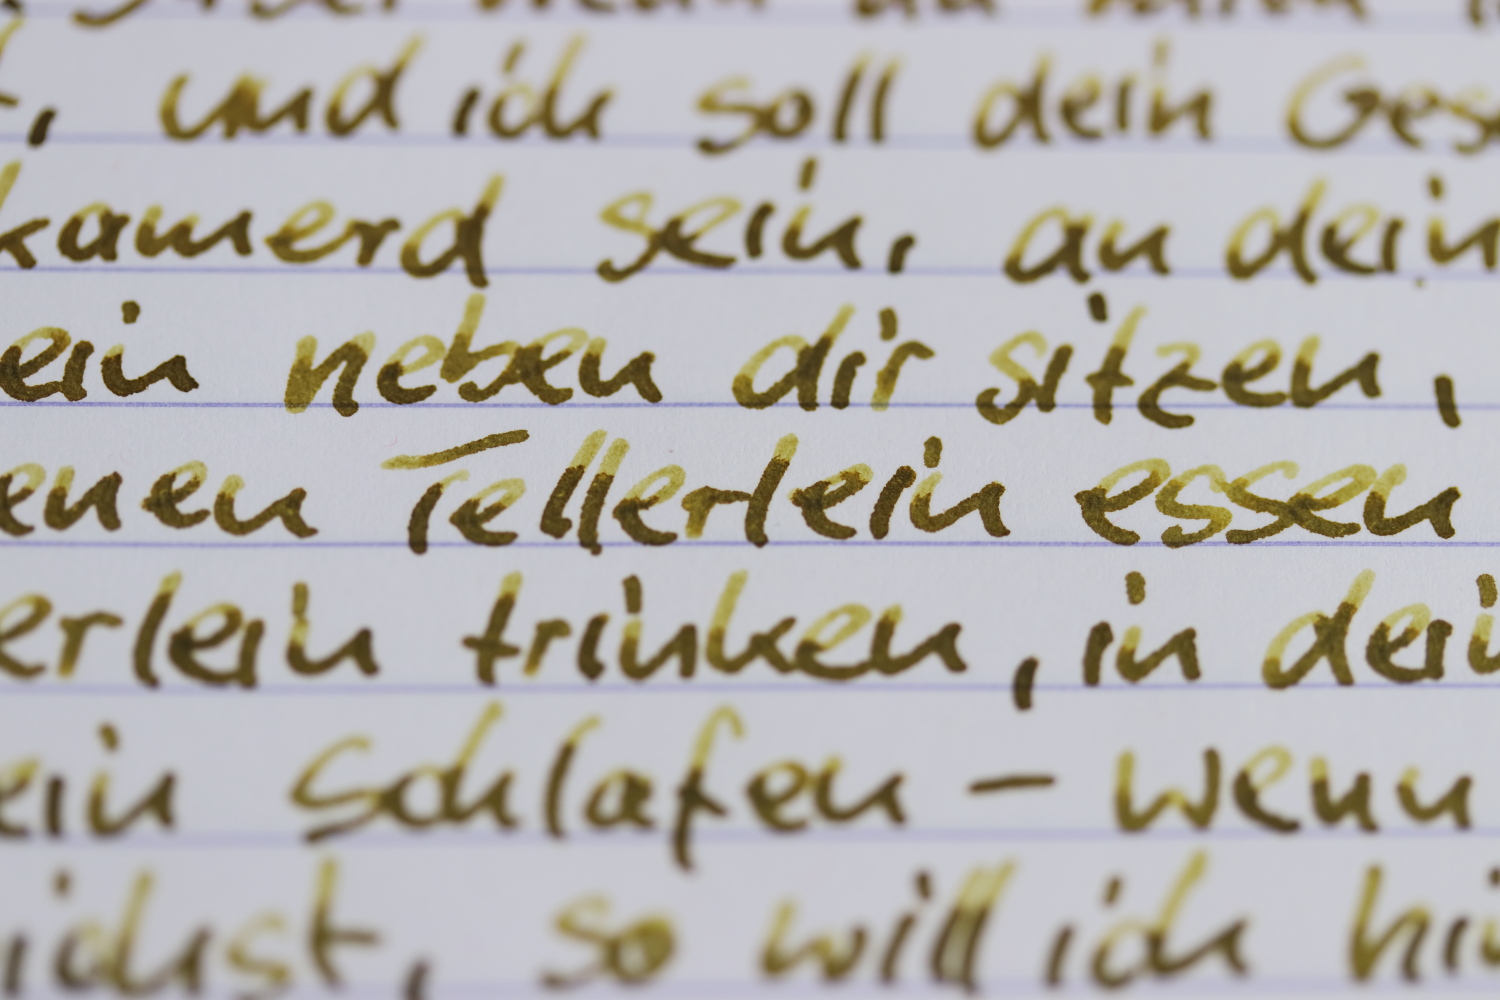 aber wenn du
, und ich soll dein Ges
kamerd sein, an dein
ein neben dir sitzen,
enen Tellerlein essen
erlein trinken, in dei
ein schlafen – wenn
ichst, so will ich hi